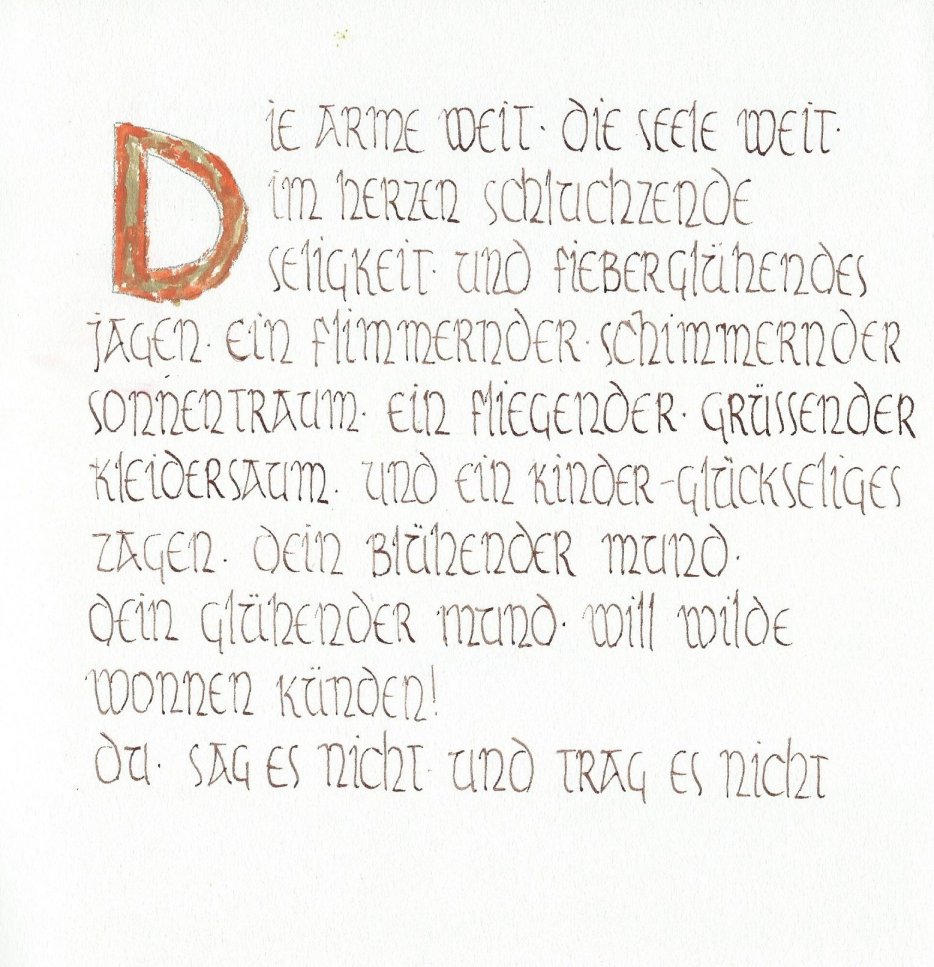 Die Arme weit · die Seele weit ·
im Herzen schluchzende
Seligkeit · und fieberglühendes
Jagen · ein flimmernder · schimmernder
Sonnentraum · ein fliegender · grüssender
Kleidersaum · und ein kinder-glückseliges
Zagen · dein blühender Mund ·
dein glühender Mund · will wilde
Wonnen künden!
Du · sag es nicht · und trag es nicht